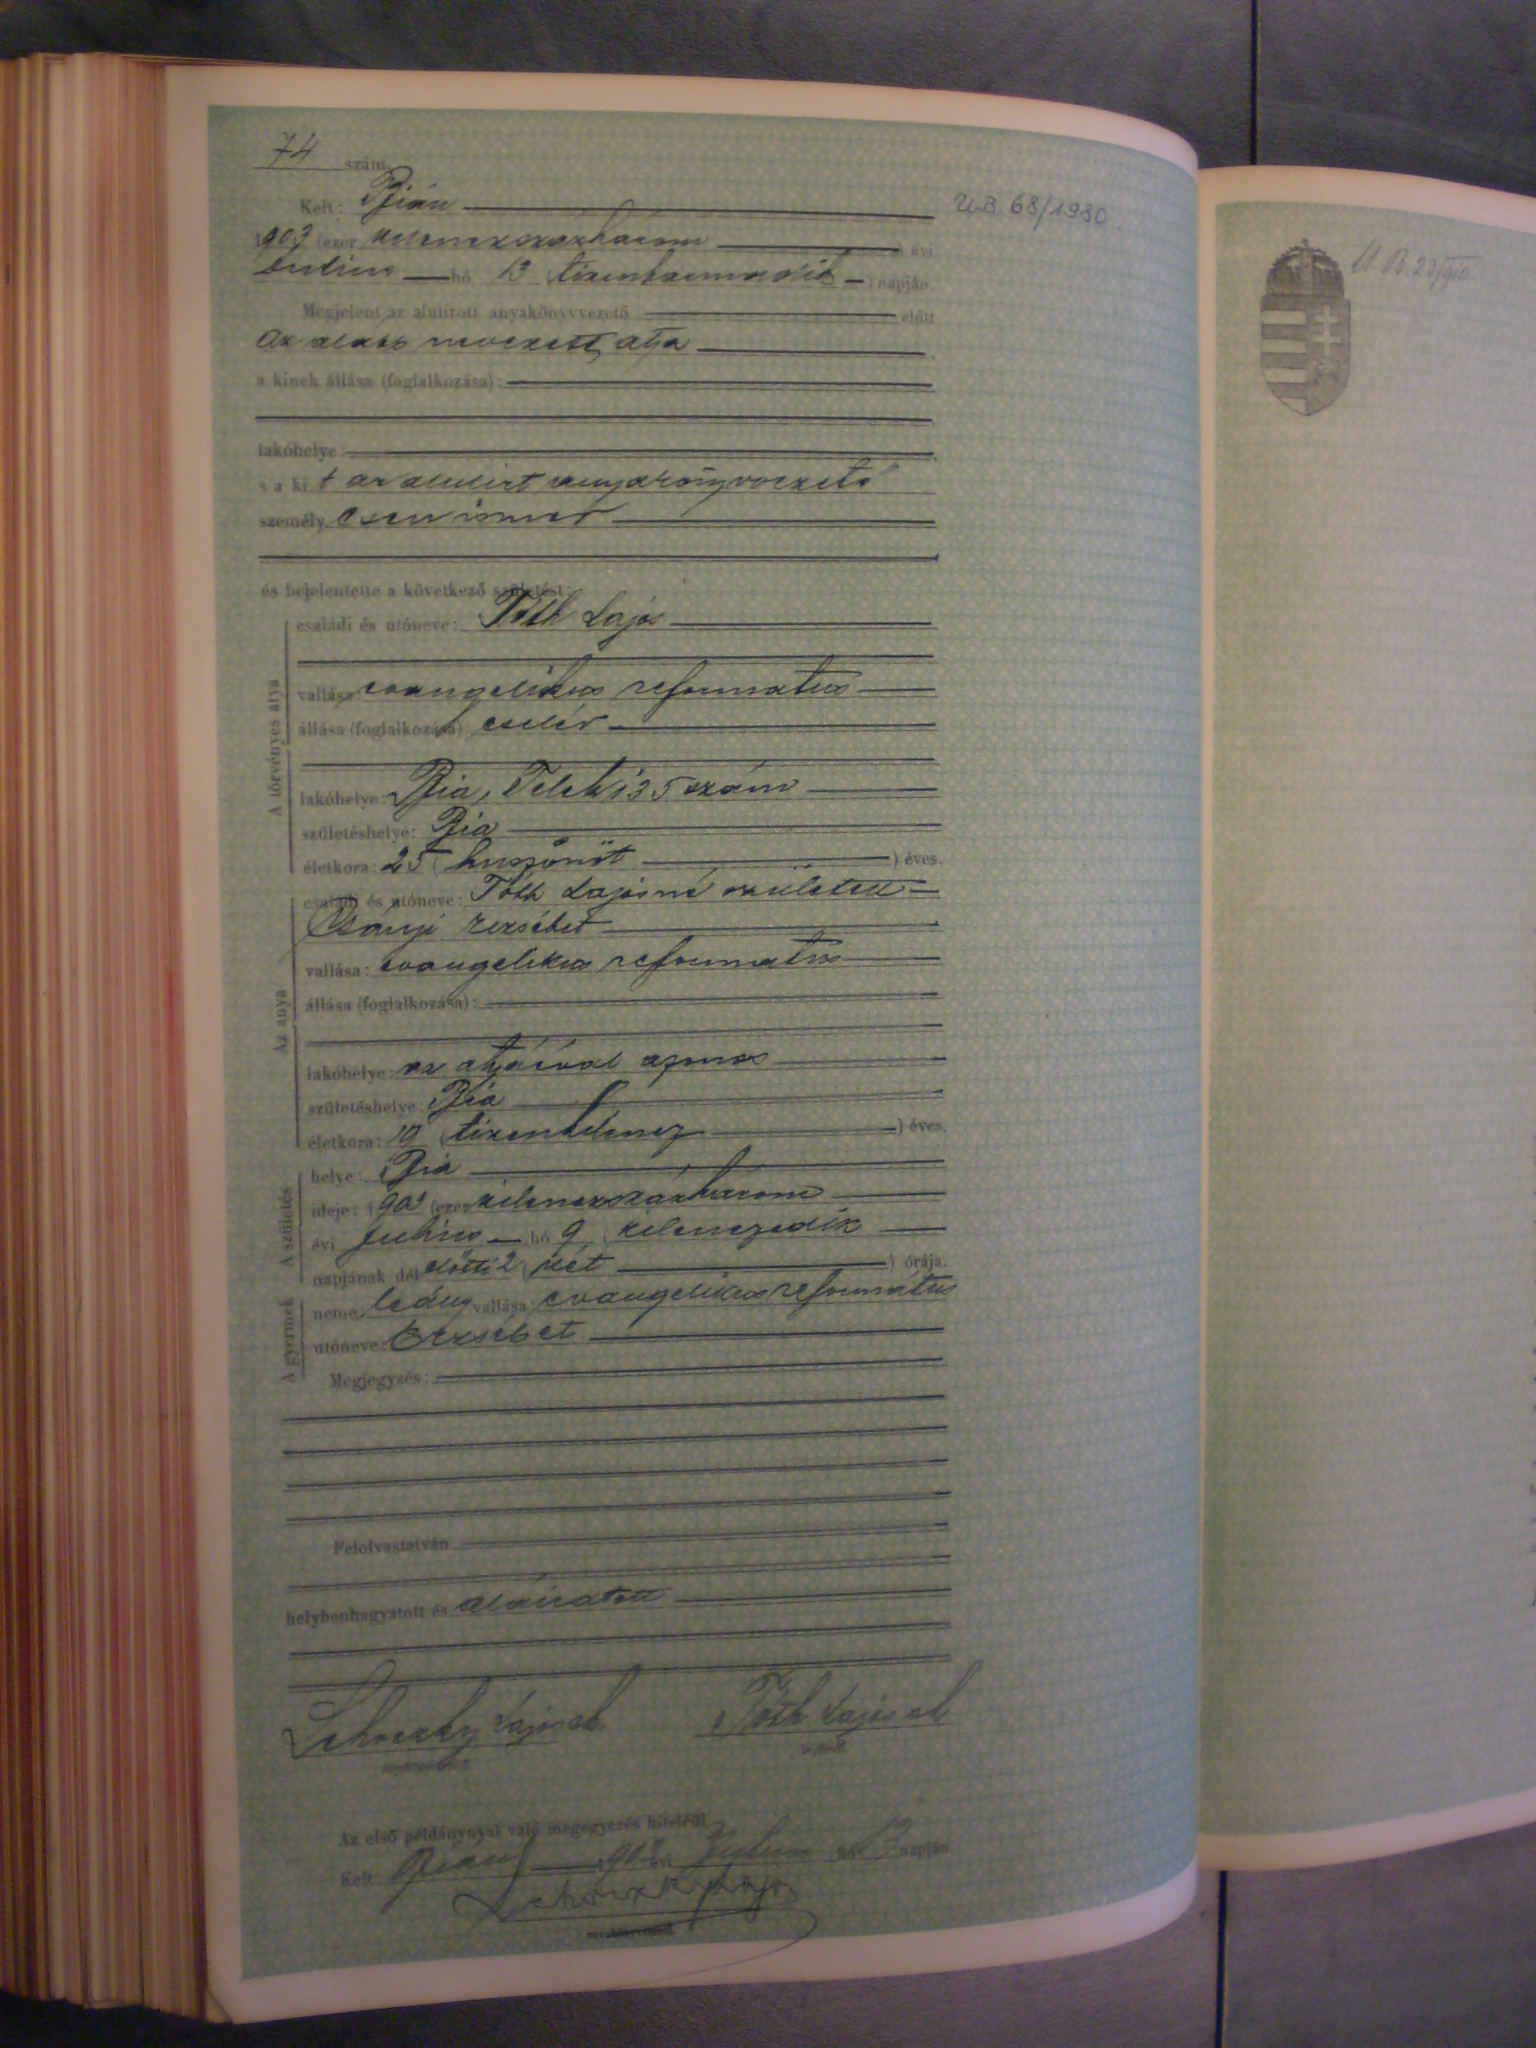 74 szám.
Kelt: Bián
1903 (ezer kilenczszázhárom ) évi
Julius hó 13 (tizenharmadik ) napján.
Megjelent az alulírott anyakönyvvezető előtt
az alább nevezett atya
a kinek állása (foglalkozása):
lakóhelye:
s a ki t az alulirt anyakönyvvezető
személy esen ismer
és bejelentette a következő születést:
A törvényes atya
családi és utóneve: Tóth Lajos
vallása: evangelikus reformatus
állása (foglalkozása): cseléd
lakóhelye: Bia, Teleki 35 szám
születéshelye: Bia
életkora: 25 (huszonöt ) éves.
Az anya
családi és utóneve: Tóth Lajosné született
Csányi Erzsébet
vallása: evangelikus reformatus
állása (foglalkozása):
lakóhelye: az atyáéval azonos
születéshelye: Bia
életkora: 19 (tizenkilencz ) éves.
A születés
helye: Bia
ideje: 1903 (ezer kilenczszázhárom
évi Julius hó 9 (kilenczedik
napjának dél előtti 2 (két ) órája.
A gyermek
neme: leány vallása: evangelikus református
utóneve: Erzsébet
Megjegyzés:
Felolvastatván
helybenhagyatott és aláiratott
Lajos sk. Tóth Lajos sk
Az első példánynyal való megegyezés hiteléül
Kelt Bián 1903 évi Julius hó 13 napján
Lajos
anyakönyvvezető
U.B. 68/1930
U.B. 23/910